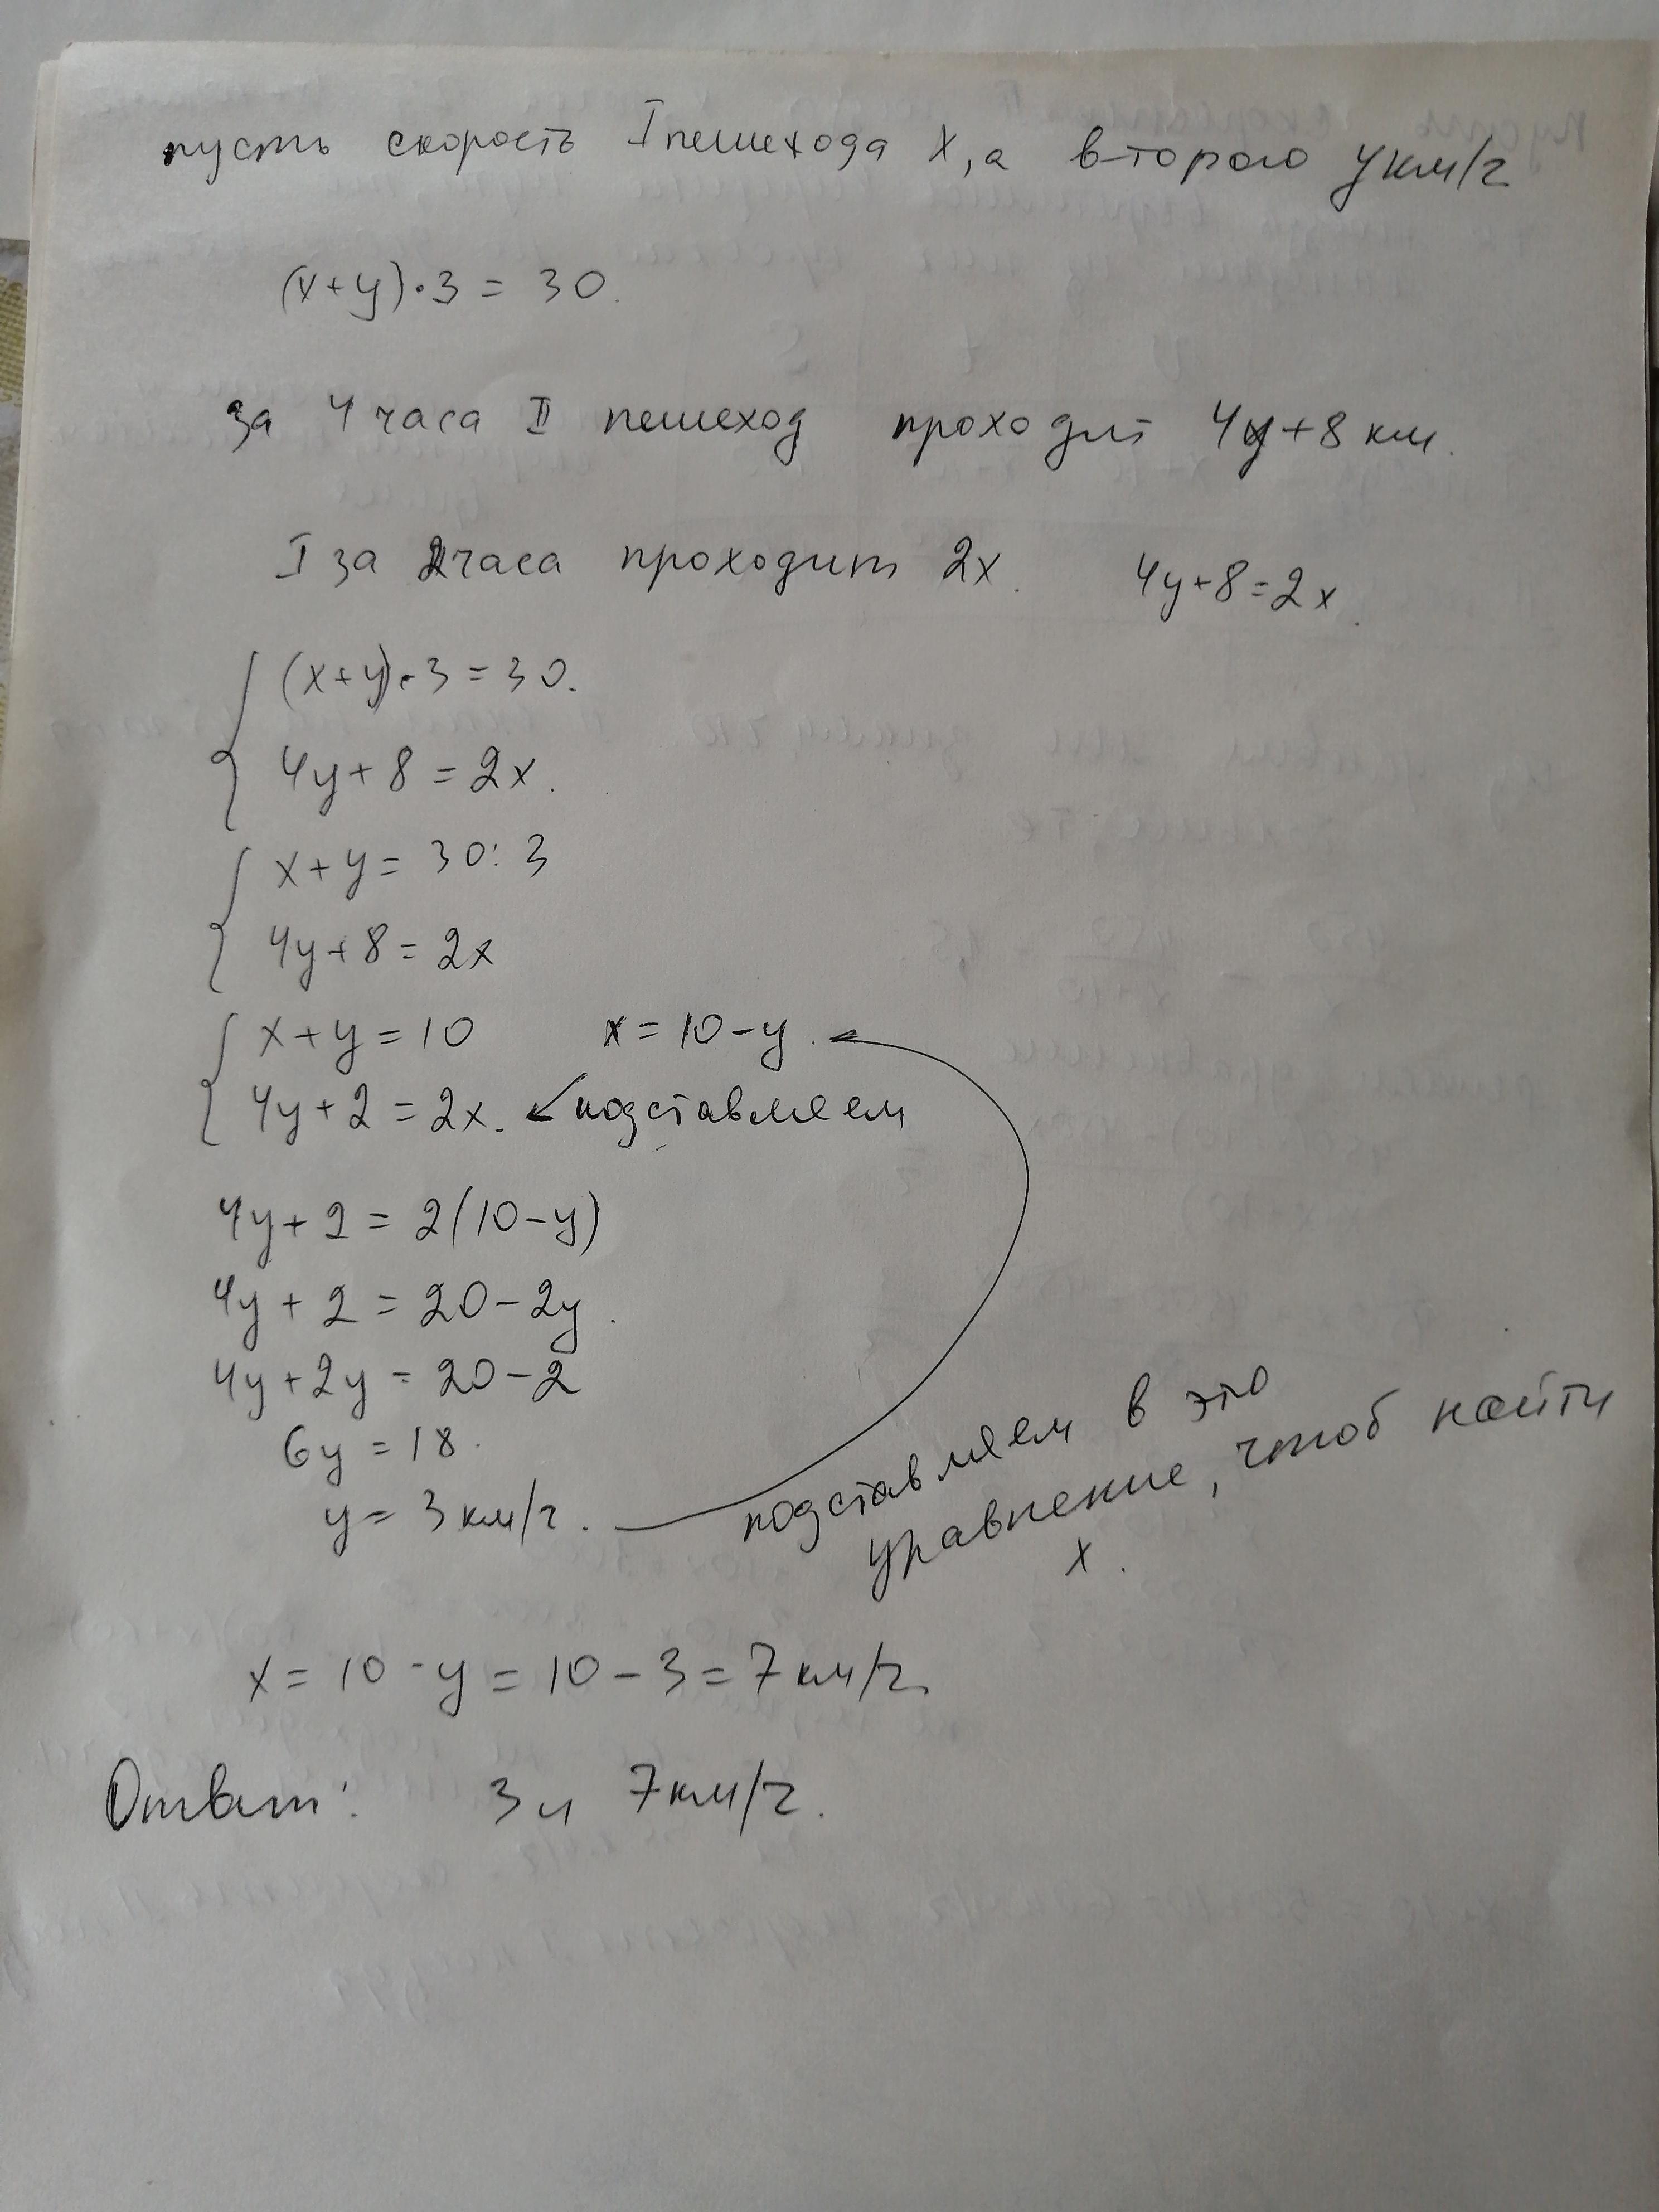 пусть скорость I пешехода x, а второго y км/ч
(x+y)·3 = 30.
за 4 часа II пешеход проходит 4y+8 км.
I за 2 часа проходит 2x. 4y+8=2x.
(x+y)·3=30.
4y+8=2x.
x+y= 30:3
4y+8=2x
x+y=10 x=10-y.
4y+2=2x. подставляем
4y+2=2(10-y)
4y+2=20-2y.
4y+2y=20-2
6y=18.
y=3км/ч. подставляем в это
уравнение, чтоб найти
x.
x=10-y=10-3=7км/ч.
Ответ: 3 и 7км/ч.